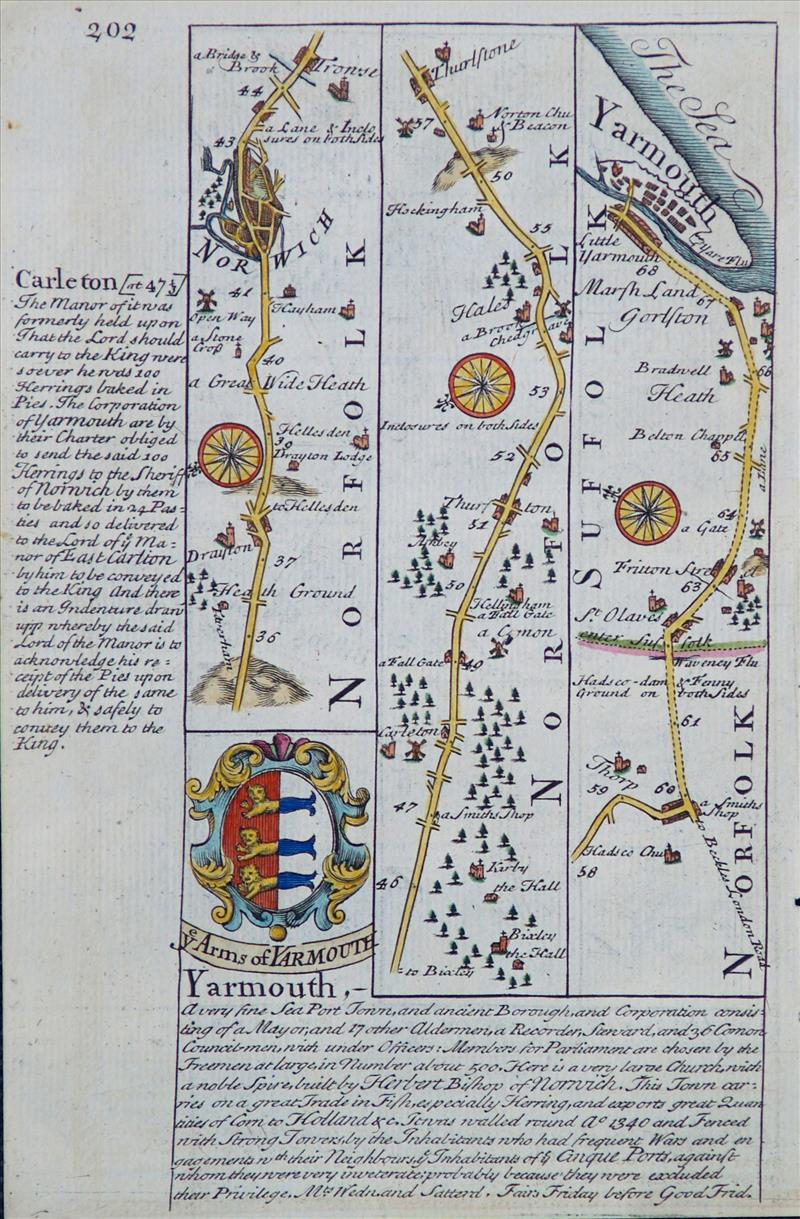 202
Carleton [at 47½]
The Manor of it was
formerly held upon
That the Lord should
carry to the King were
soever he was 100
Herrings baked in
Pies. The Corporation
of Yarmouth are by
their Charter obliged
to send the said 100
Herrings to the Sheriff
of Norwich by them
to be baked in 24 Pas=
ties and so delivered
to the Lord of yͤ Ma=
nor of East Carlton
by him to be conveyed
to the King And there
is an Indenture drawn
upp whereby the said
Lord of the Manor is to
acknowledge his re=
ceipt of the Pies upon
delivery of the same
to him, & safely to
convey them to the
King.
a Bridge &
Brook
Trowse
44
a Lane & Inclo
sures on both Sides
43
NORWICH
41
Hayham
Open Way
a Stone
Crop
40
a Great Wide Heath
Hellesden
39
Drayton Lodge
to Hellesden
Drayton
37
Heath Ground
Taverham
36
NORFOLK
yͤ Arms of YARMOUTH
Thurlstone
57
Norton Chu
& Beacon
50
Hockingham
55
Hales
a Brook
chedgrave
53
Inclosures on both Sides
52
Thurfton
51
Ashby
50
Hellingham
a Fall Gate
a Comon
a Fall Gate
49
Carleton
47
a Smiths Shop
46
Kirby
the Hall
Bixley
the Hall
to Bixley
NORFOLK
The Sea
Yarmouth
Yare Flu
Little
Yarmouth
68
Marsh Land
67
Gorlston
66
Bradwell
Heath
Belton Chappll
65
a Lane
64
a Gate
Fritton Street
63
St. Olaves
enter Suffolk
Waveney Flu
Hadsco-dam & Fenny
Ground on both Sides
61
Thorp
59
60
a Smiths
Shop
Hadsco Chu
58
to Beckles London Road
SUFFOLK
NORFOLK
Yarmouth,-
A very fine Sea Port Town, and ancient Borough, and Corporation consis=
ting of a Mayor, and 17 other Aldermen, a Recorder, Steward, and 36 Comon
Council-men, with under Officers: Members for Parliament are chosen by the
Freemen at large, in Number about 500. Here is a very large Church, with
a noble Spire, built by Herbert Bishop of Norwich. This Town car=
ries on a great Trade in Fish, especially Herring, and exports great Quan
tities of Corn to Holland &c. Twas walled round Aº 1340 and Fenced
with Strong Towers, by the Inhabitants who had frequent Wars and en
gagements wth their Neighbours yͤ Inhabitants of yͤ Cinque Ports, against
whom they were very inveterate; probably because they were excluded
their Privilege. Mts Wedn. and Satterd. Fairs Friday before Good Frid.